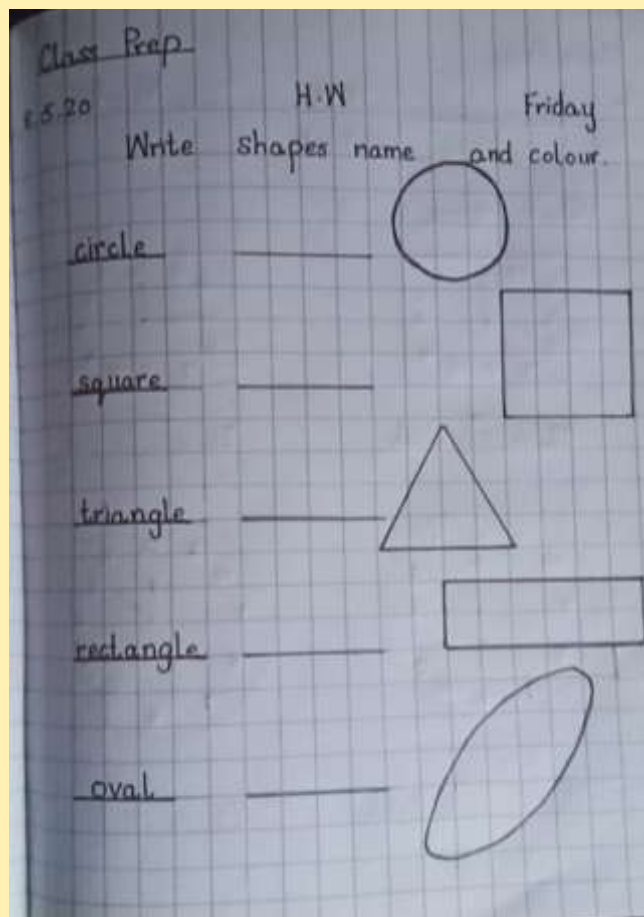 Class Prep
.5.20 H.W Friday
Write shapes name and colour.
circle
square
triangle
rectangle
oval